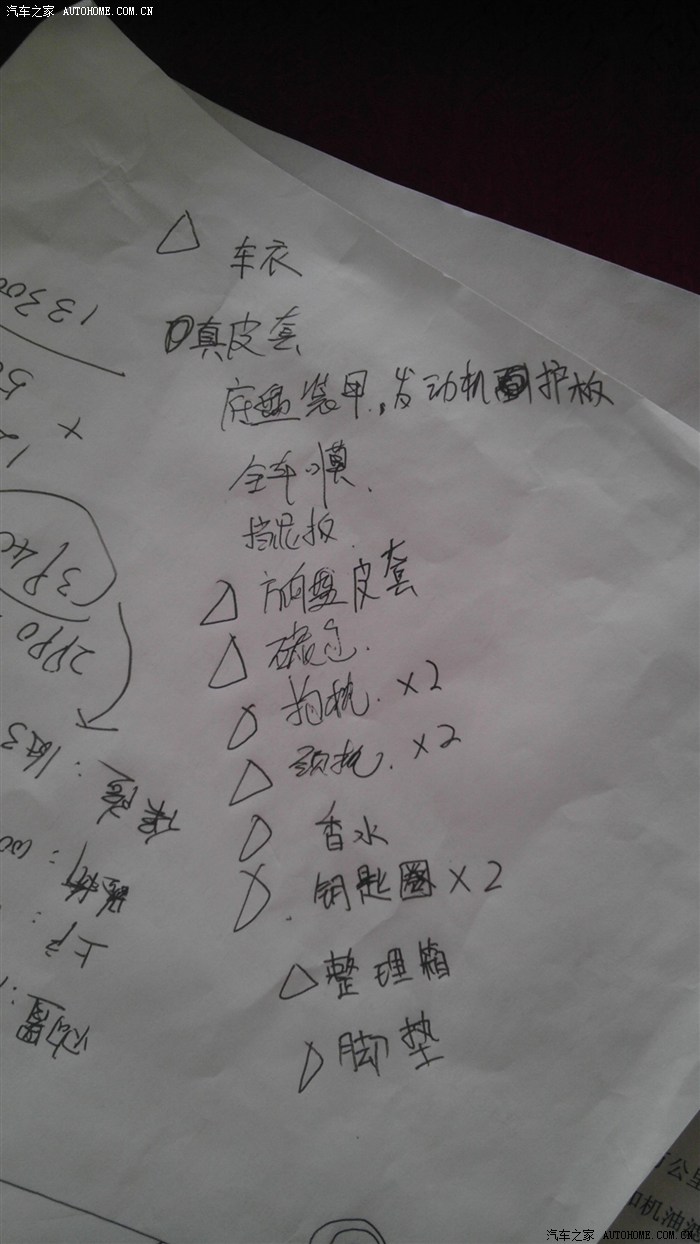 汽车之家 AUTOHOME.COM.CN
△ 车衣
真皮套
底盘装甲,发动机护板
全车膜.
挡泥板.
△ 方向盘皮套
△ 碳包.
△ 抱枕. ×2
△ 颈枕. ×2
△ 香水
△. 钥匙圈 ×2
△ 整理箱
△ 脚垫
1330
×
3840
保险:
上户:
购置
万公里
和机油
汽车之家 AUTOHOME.COM.CN